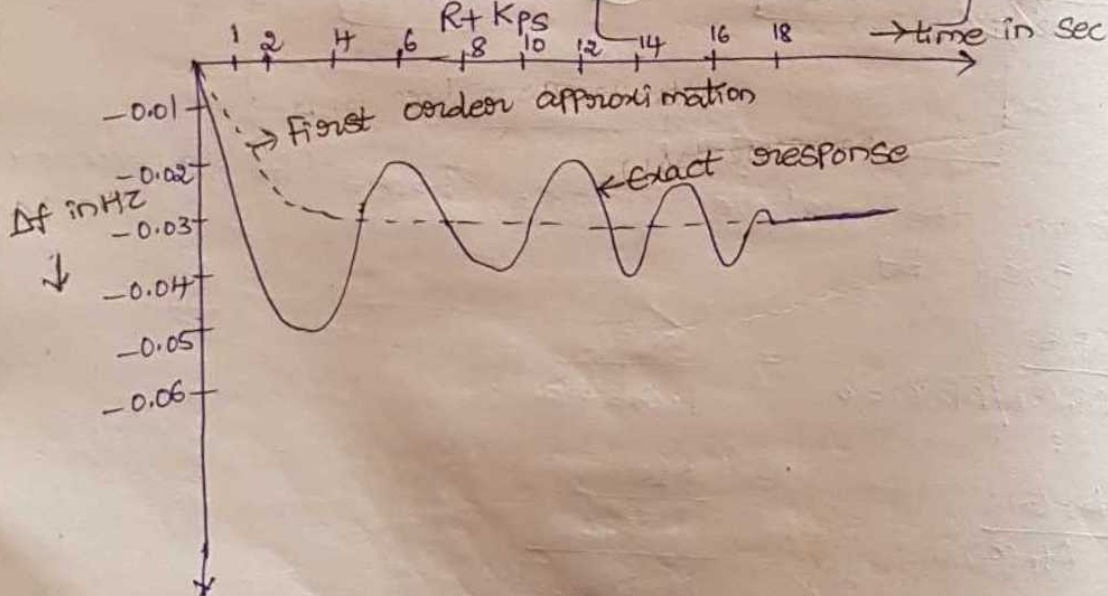 R+ Kps
1 2 4 6 8 10 12 14 16 18 →time in sec
-0.01
→ First order approximation
-0.02
←Exact response
Δf in HZ
-0.03
↓
-0.04
-0.05
-0.06